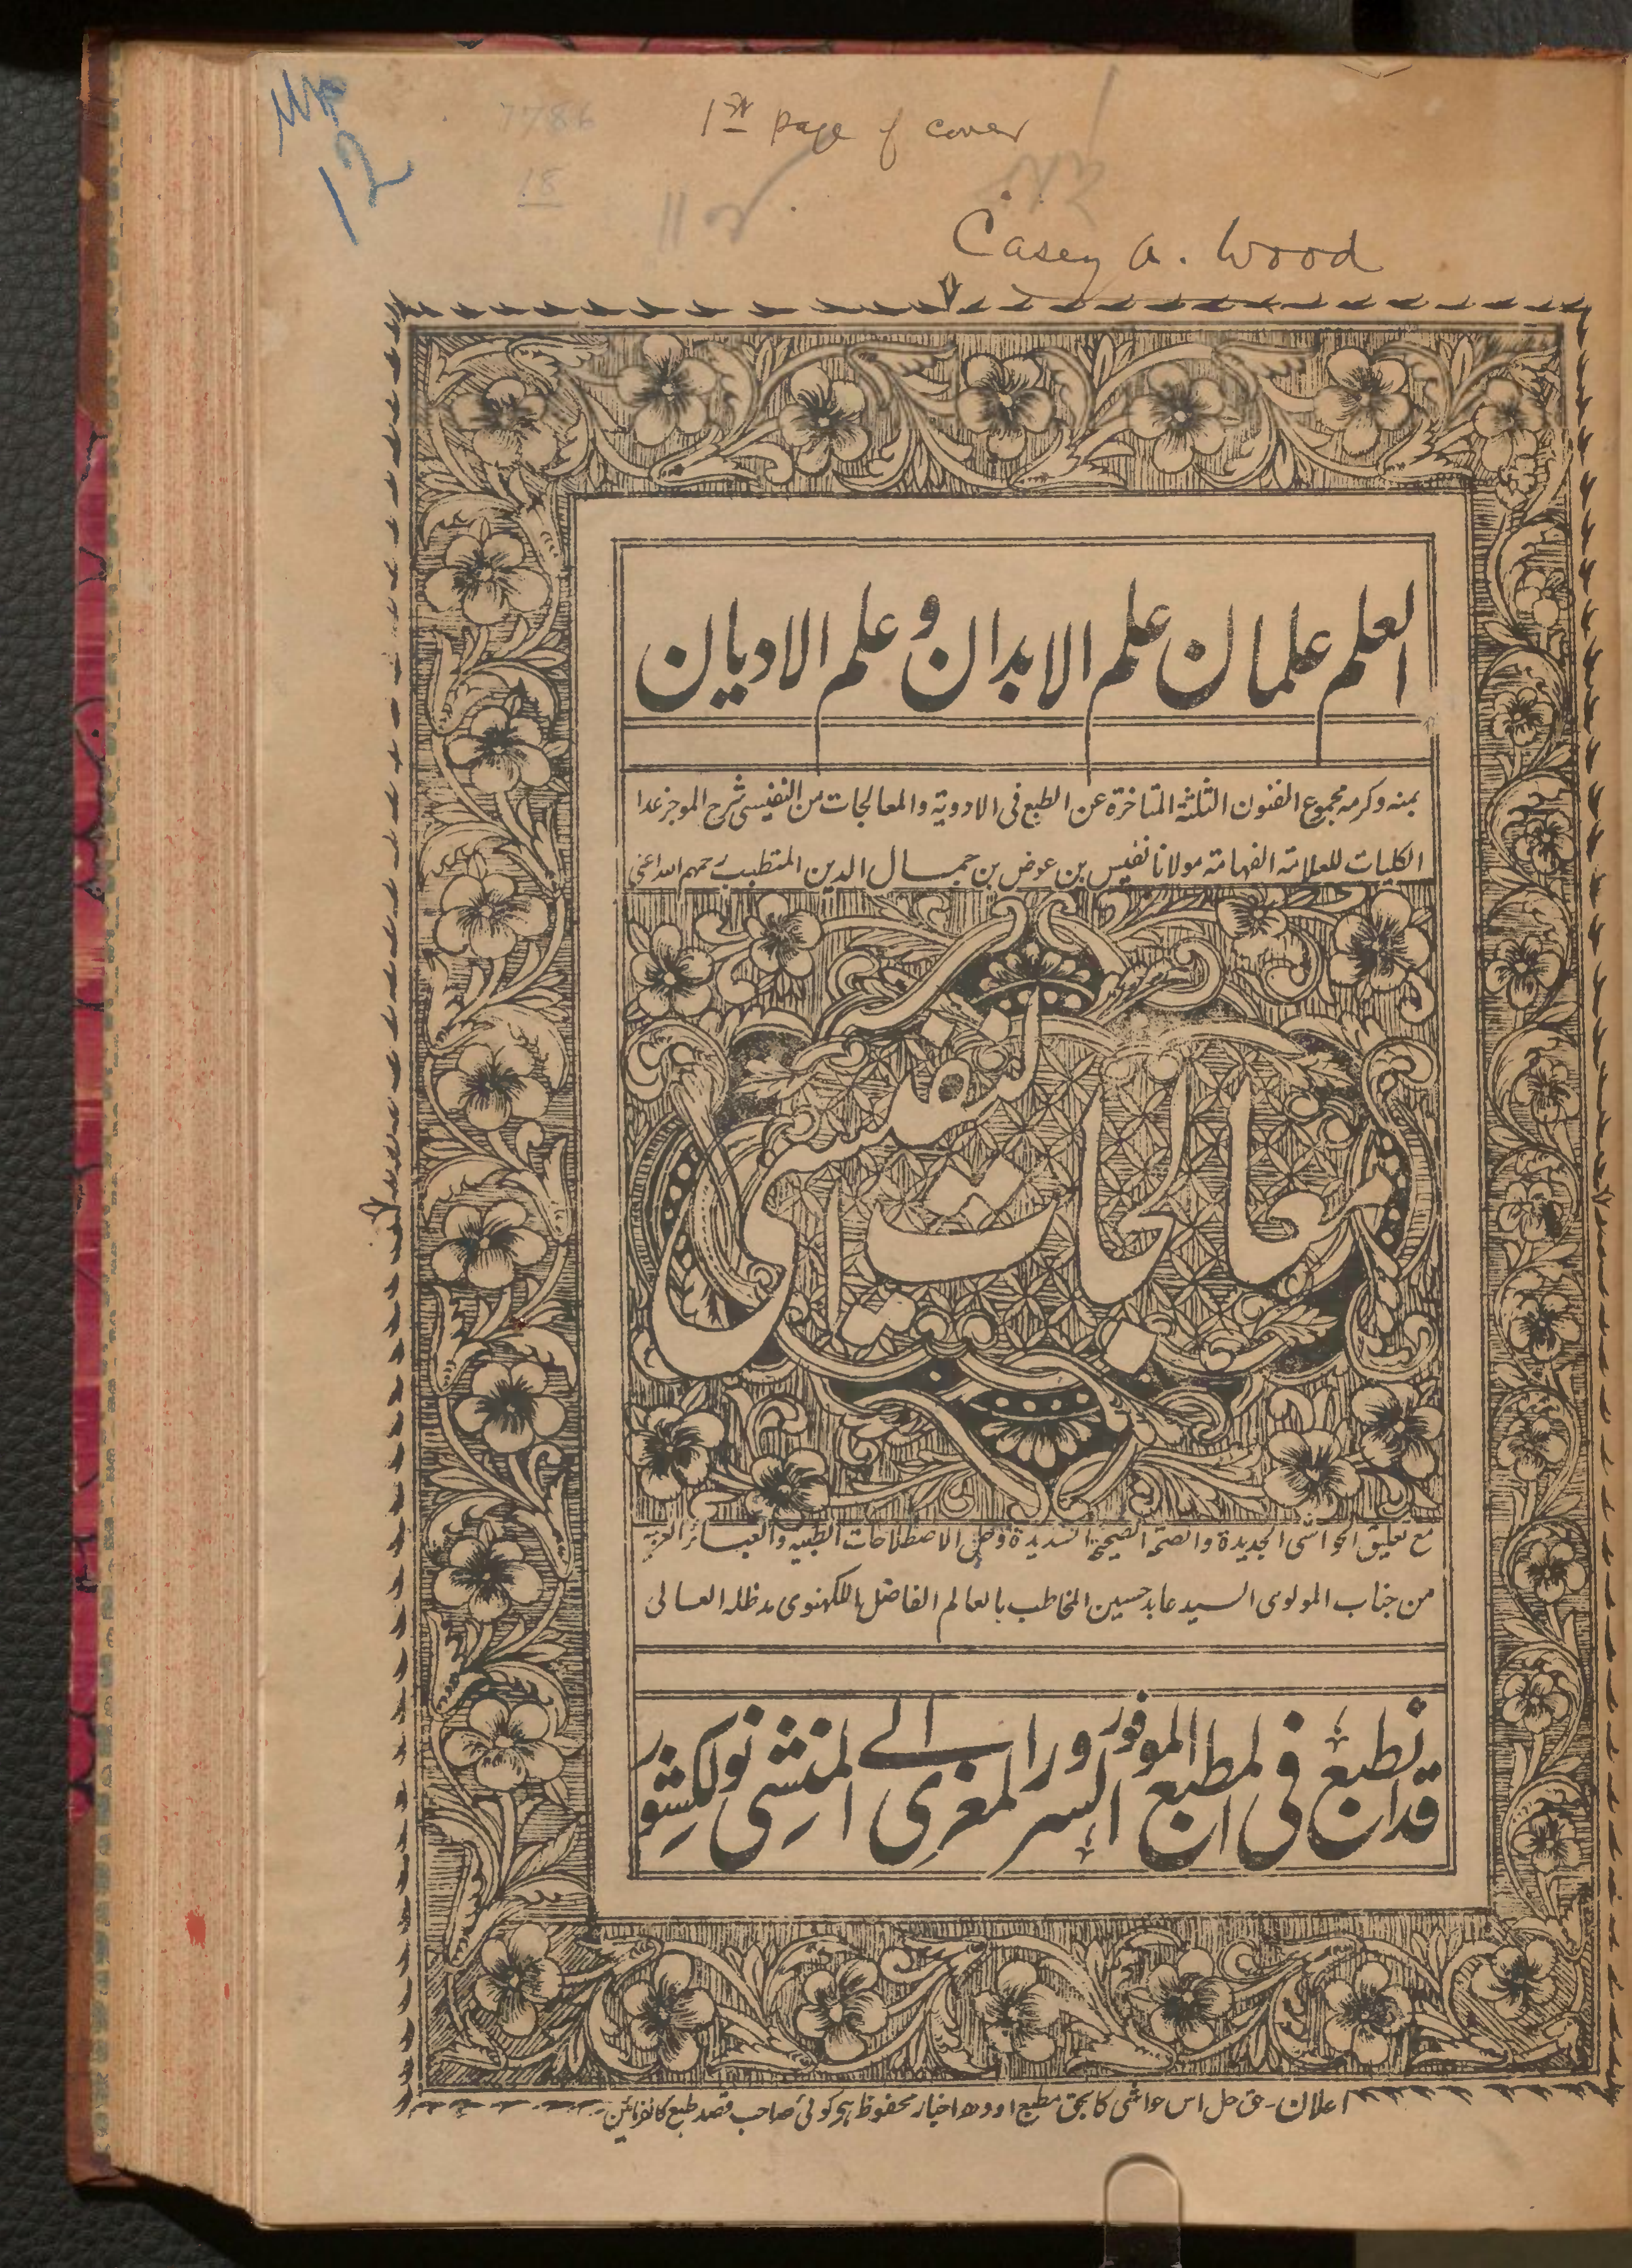 MP
12
7786
1st page of cover
18
Casey A. Wood
العلم علمان علم الابدان و علم الاديان
بمنه وكرمه مجموع الفنون الثلثة المتاخرة عن الطبع فى الادوية والمعالجات من النفيسى شرح الموجز عدا
الكليات للعلامة الفهامة مولانا نفيس بن عوض بن جمال الدين المتطبب رحمهم الله اعنى
معالجات النفيسى
مع تعليق الحواشى الجديدة والصحة الصحيحة السديدة وحل الاصطلاحات الطبية والعبائر العربية
من جناب المولوى السيد عابد حسين المخاطب بالعالم الفاضل اللكهنوى مدظله العالى
قد انطبع فى المطبع الموفور السرور المغرى الى المنشى نولكشور
اعلان - حق حل اس حواشى كا بحق مطبع اودهه اخبار محفوظ ہى كوئى صاحب قصد طبع كا نفرمائين